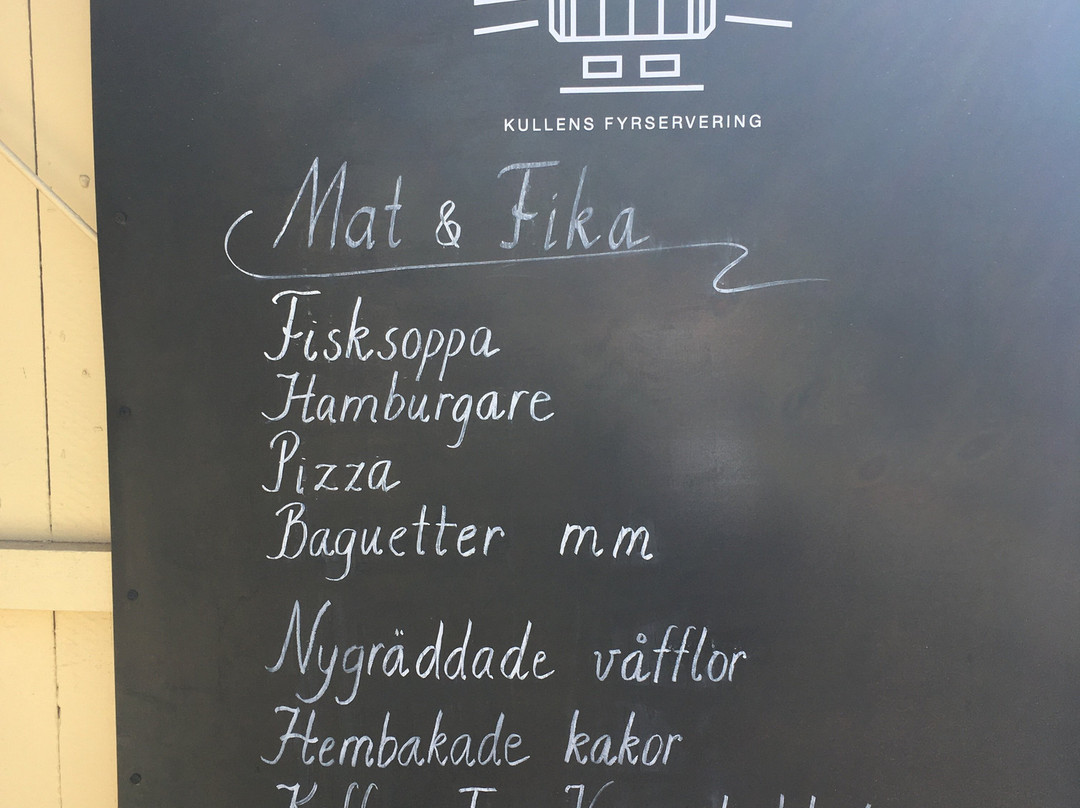 KULLENS FYRSERVERING
Mat & Fika
Fisksoppa
Hamburgare
Pizza
Baguetter mm
Nygräddade våfflor
Hembakade kakor